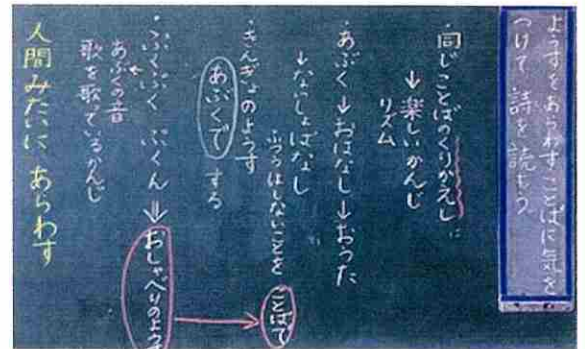 ようすをあらわすことばに気を
つけて 詩を読もう。
・同じことばのくりかえし
↓楽しいかんじ
リズム
・あぶく→おはなし→おうた
↓ないしょばなし
ふつうはしないことを
ことばで
・きんぎょのようす
あぶくで する
・ぷくぷく ぷくん⇒おしゃべりのよう
あぶくの音
歌を歌っているかんじ
人間みたいに あらわす